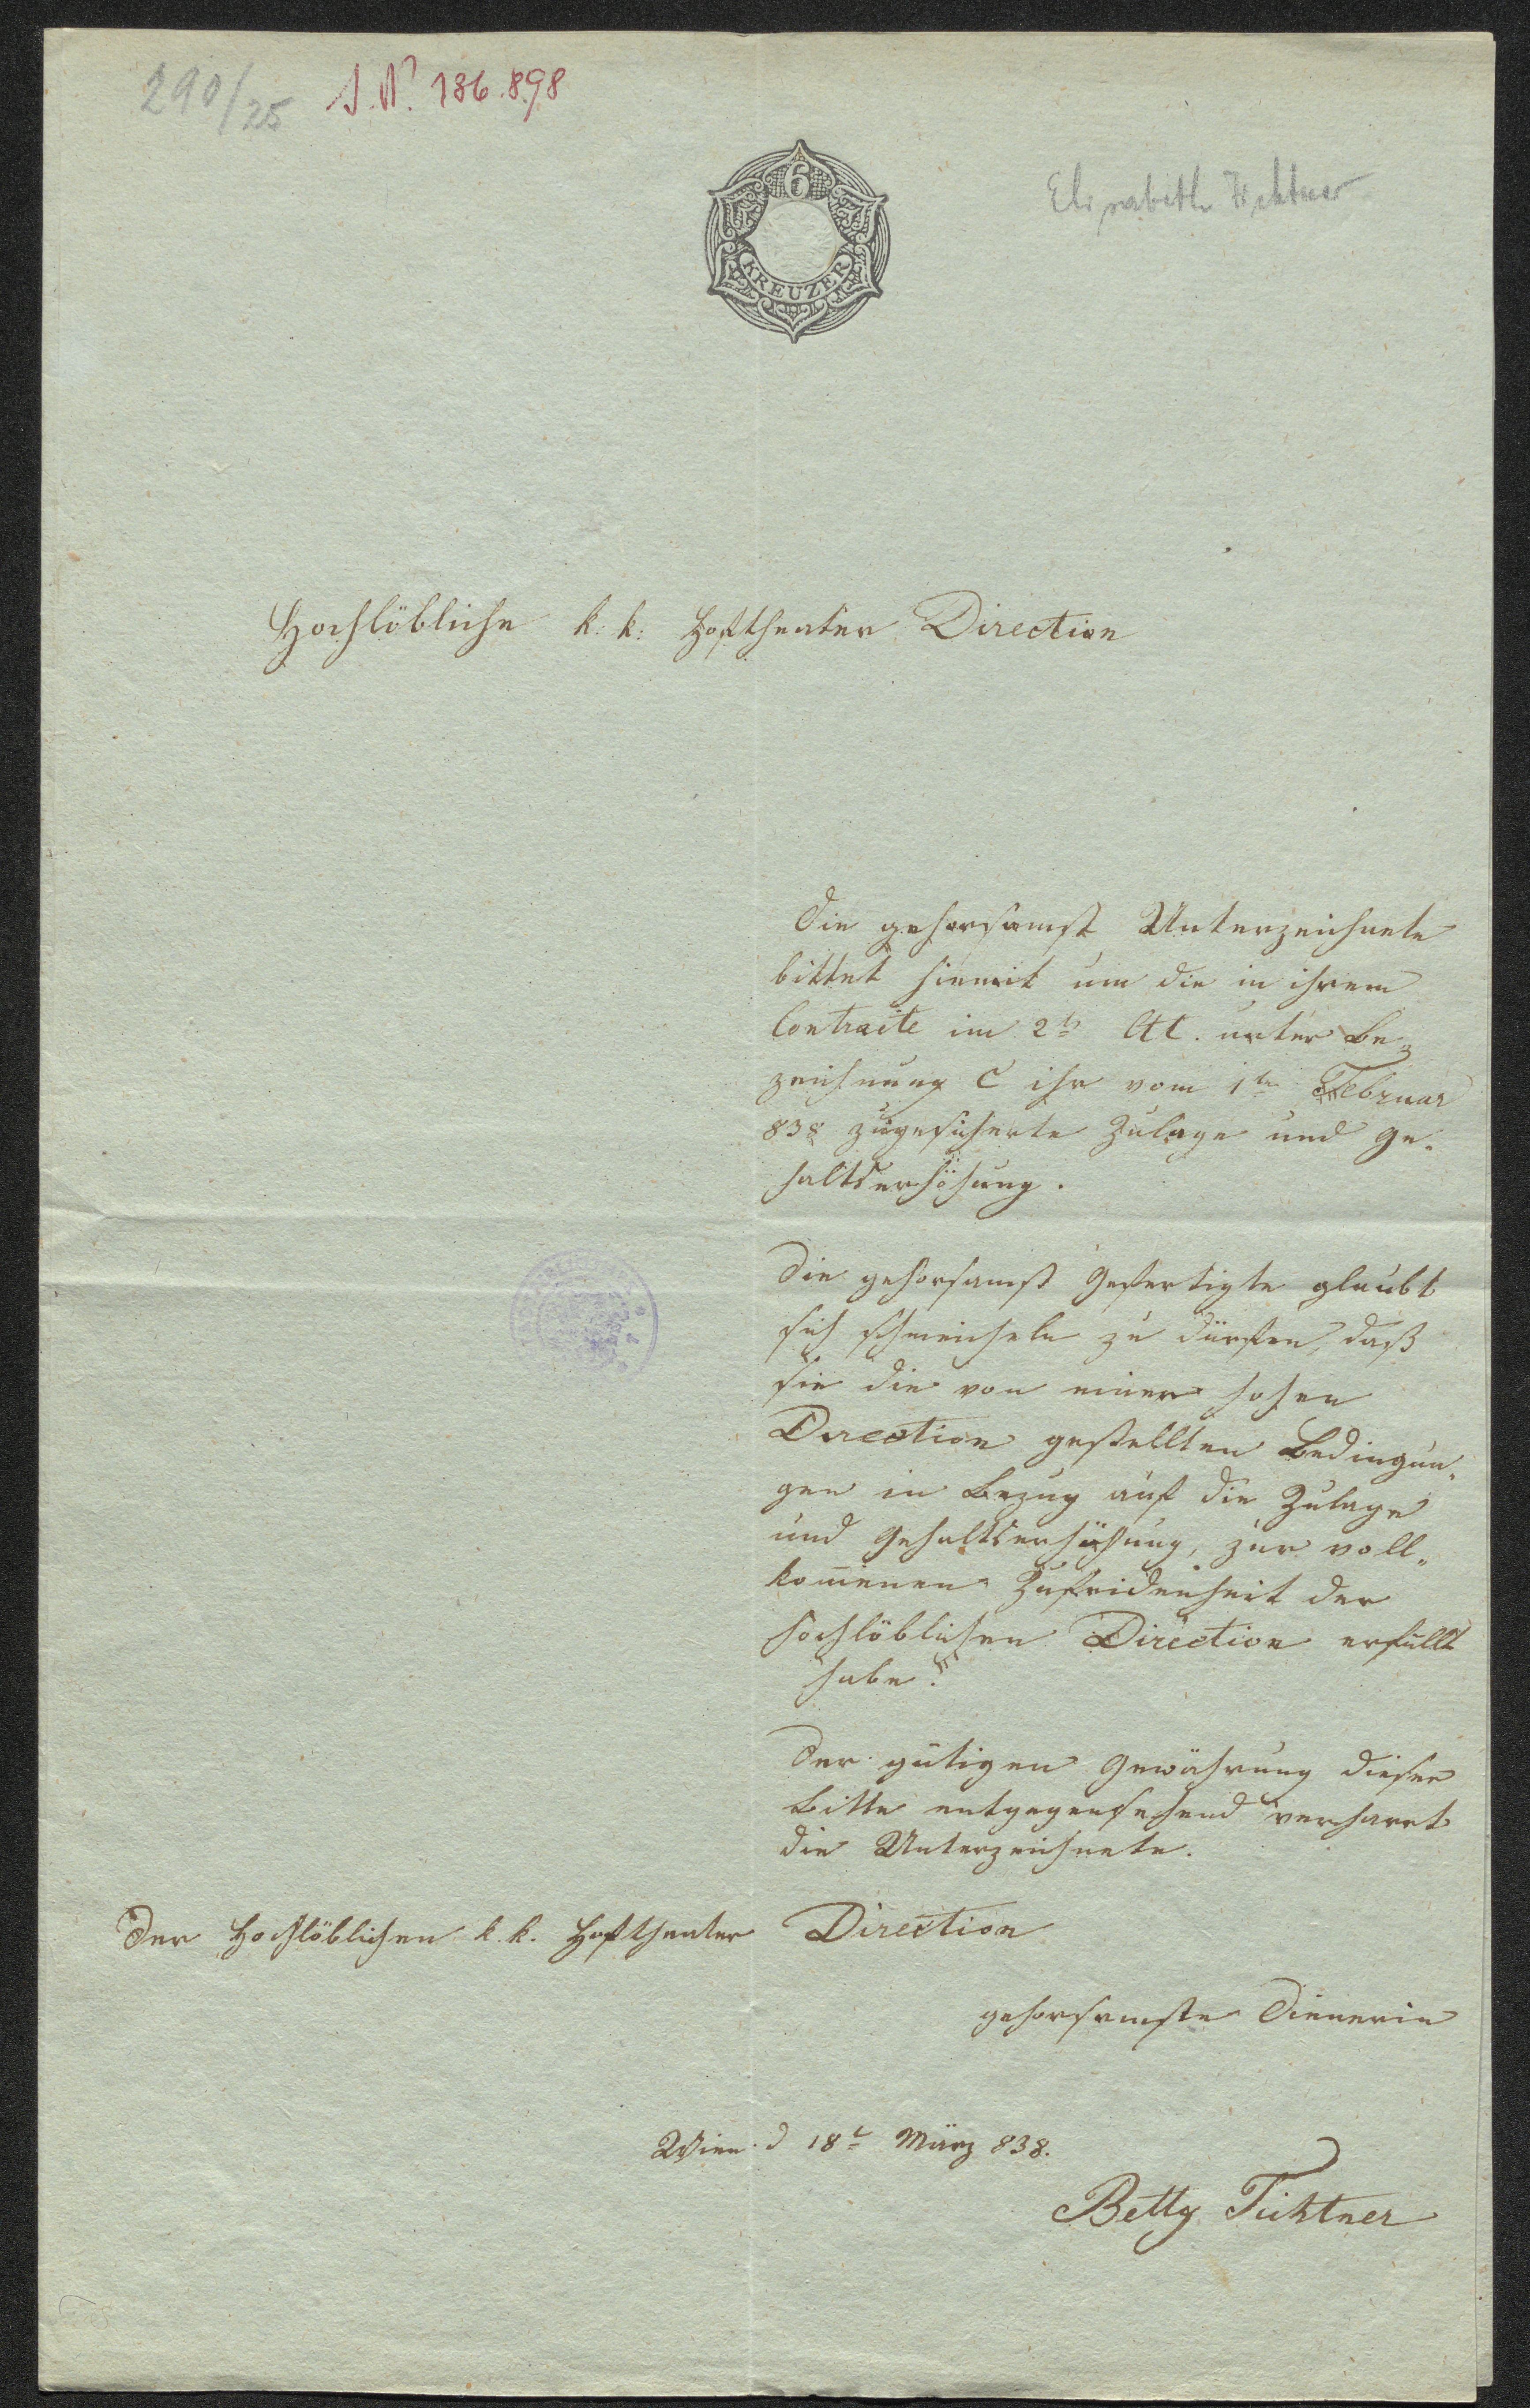 290/25 I.N. 136.898
6
KREUZER
Elisabeth Fichtner
Hochlöbliche k: k: Hoftheater Direction
Die gehorsamst Unterzeichnete
bittet hiemit um die in ihrem
Contracte im 2t Art. unter Be¬
zeichnung C ihr vom 1ten Februar
838 zugesicherte Zulage und Ge¬
haltserhöhung.
Die gehorsamst Gefertigte glaubt
sich schmeicheln zu dürfen, daß
sie die von einer hohen
Direction gestellten Bedingun¬
gen in Bezug auf die Zulage
und Gehaltserhöhung, zur voll¬
kom̅enen Zufridenheit der
hochlöblichen Direction erfüllt
habe.
Der gütigen Gewährung dieser
Bitte entgegensehend verharrt
die Unterzeichnete.
Der Hochlöblichen k. k. Hoftheater Direction
gehorsamste Dienerin
Wien d 18t März 838.
Betty Fichtner